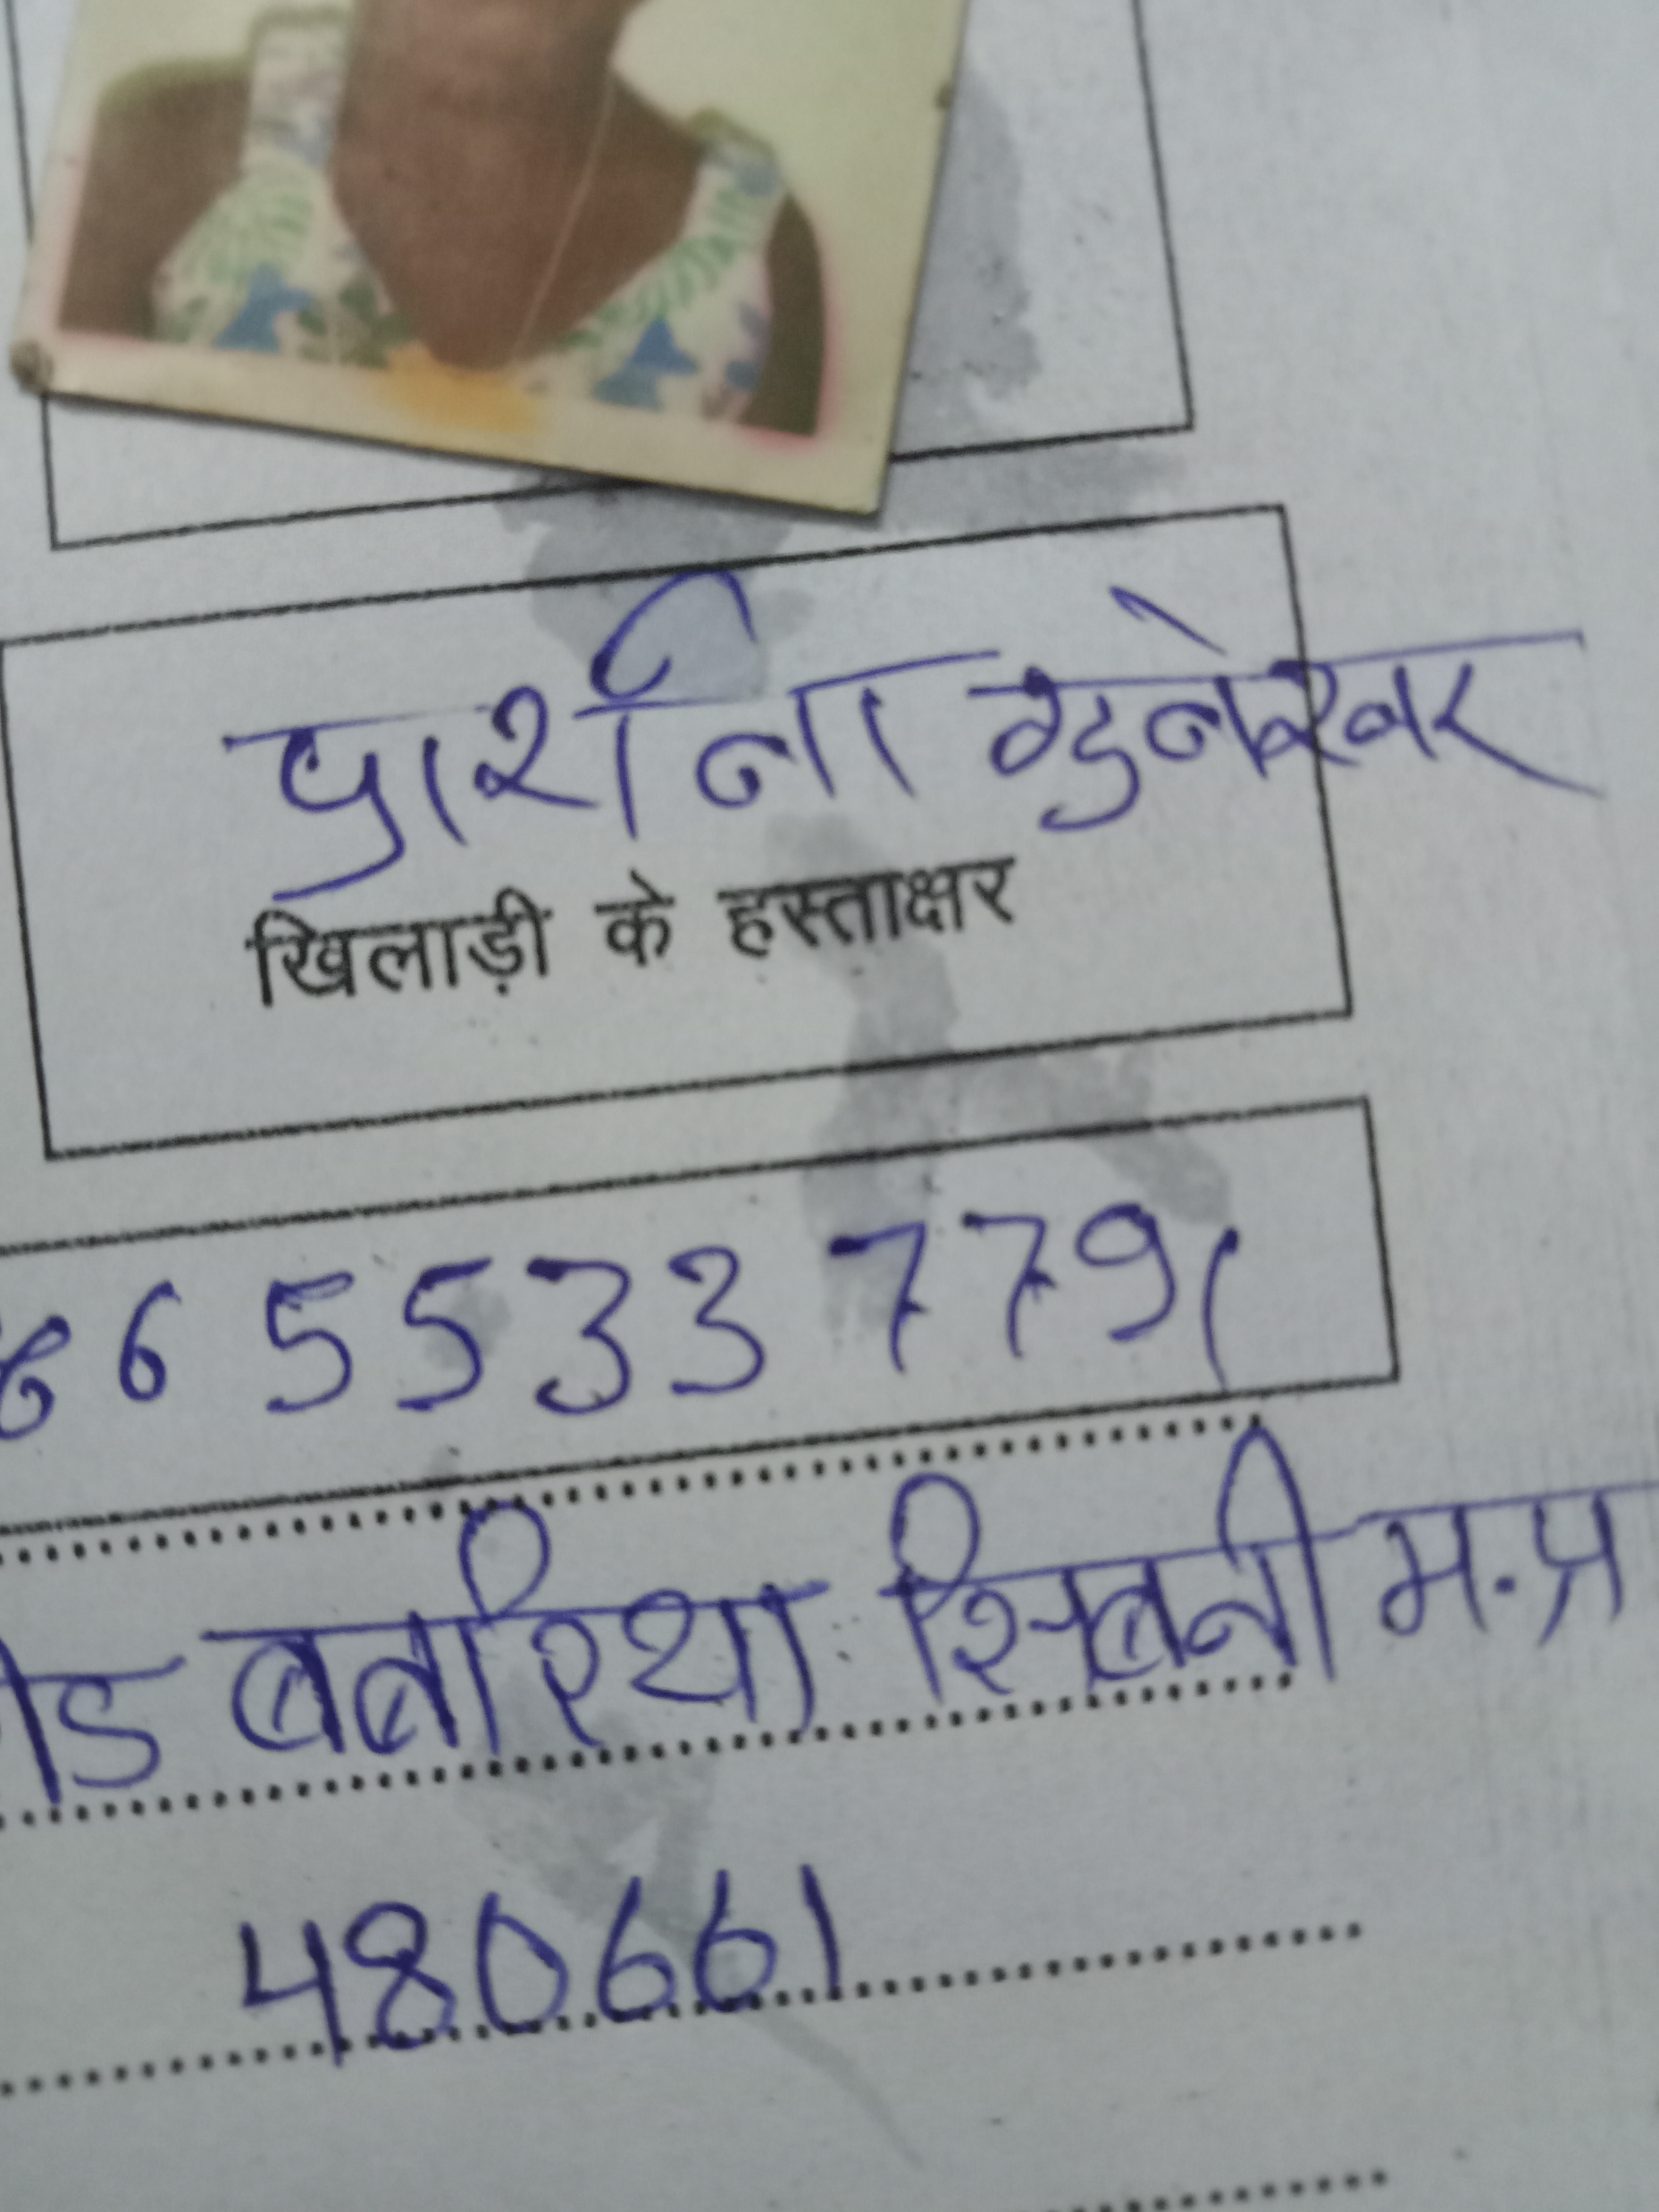 प्रार्थना गुनेश्वर
खिलाड़ी के हस्ताक्षर
6 5 5 3 3 7 7 9 1
रोड बबरिया सिवनी म.प्र
480661